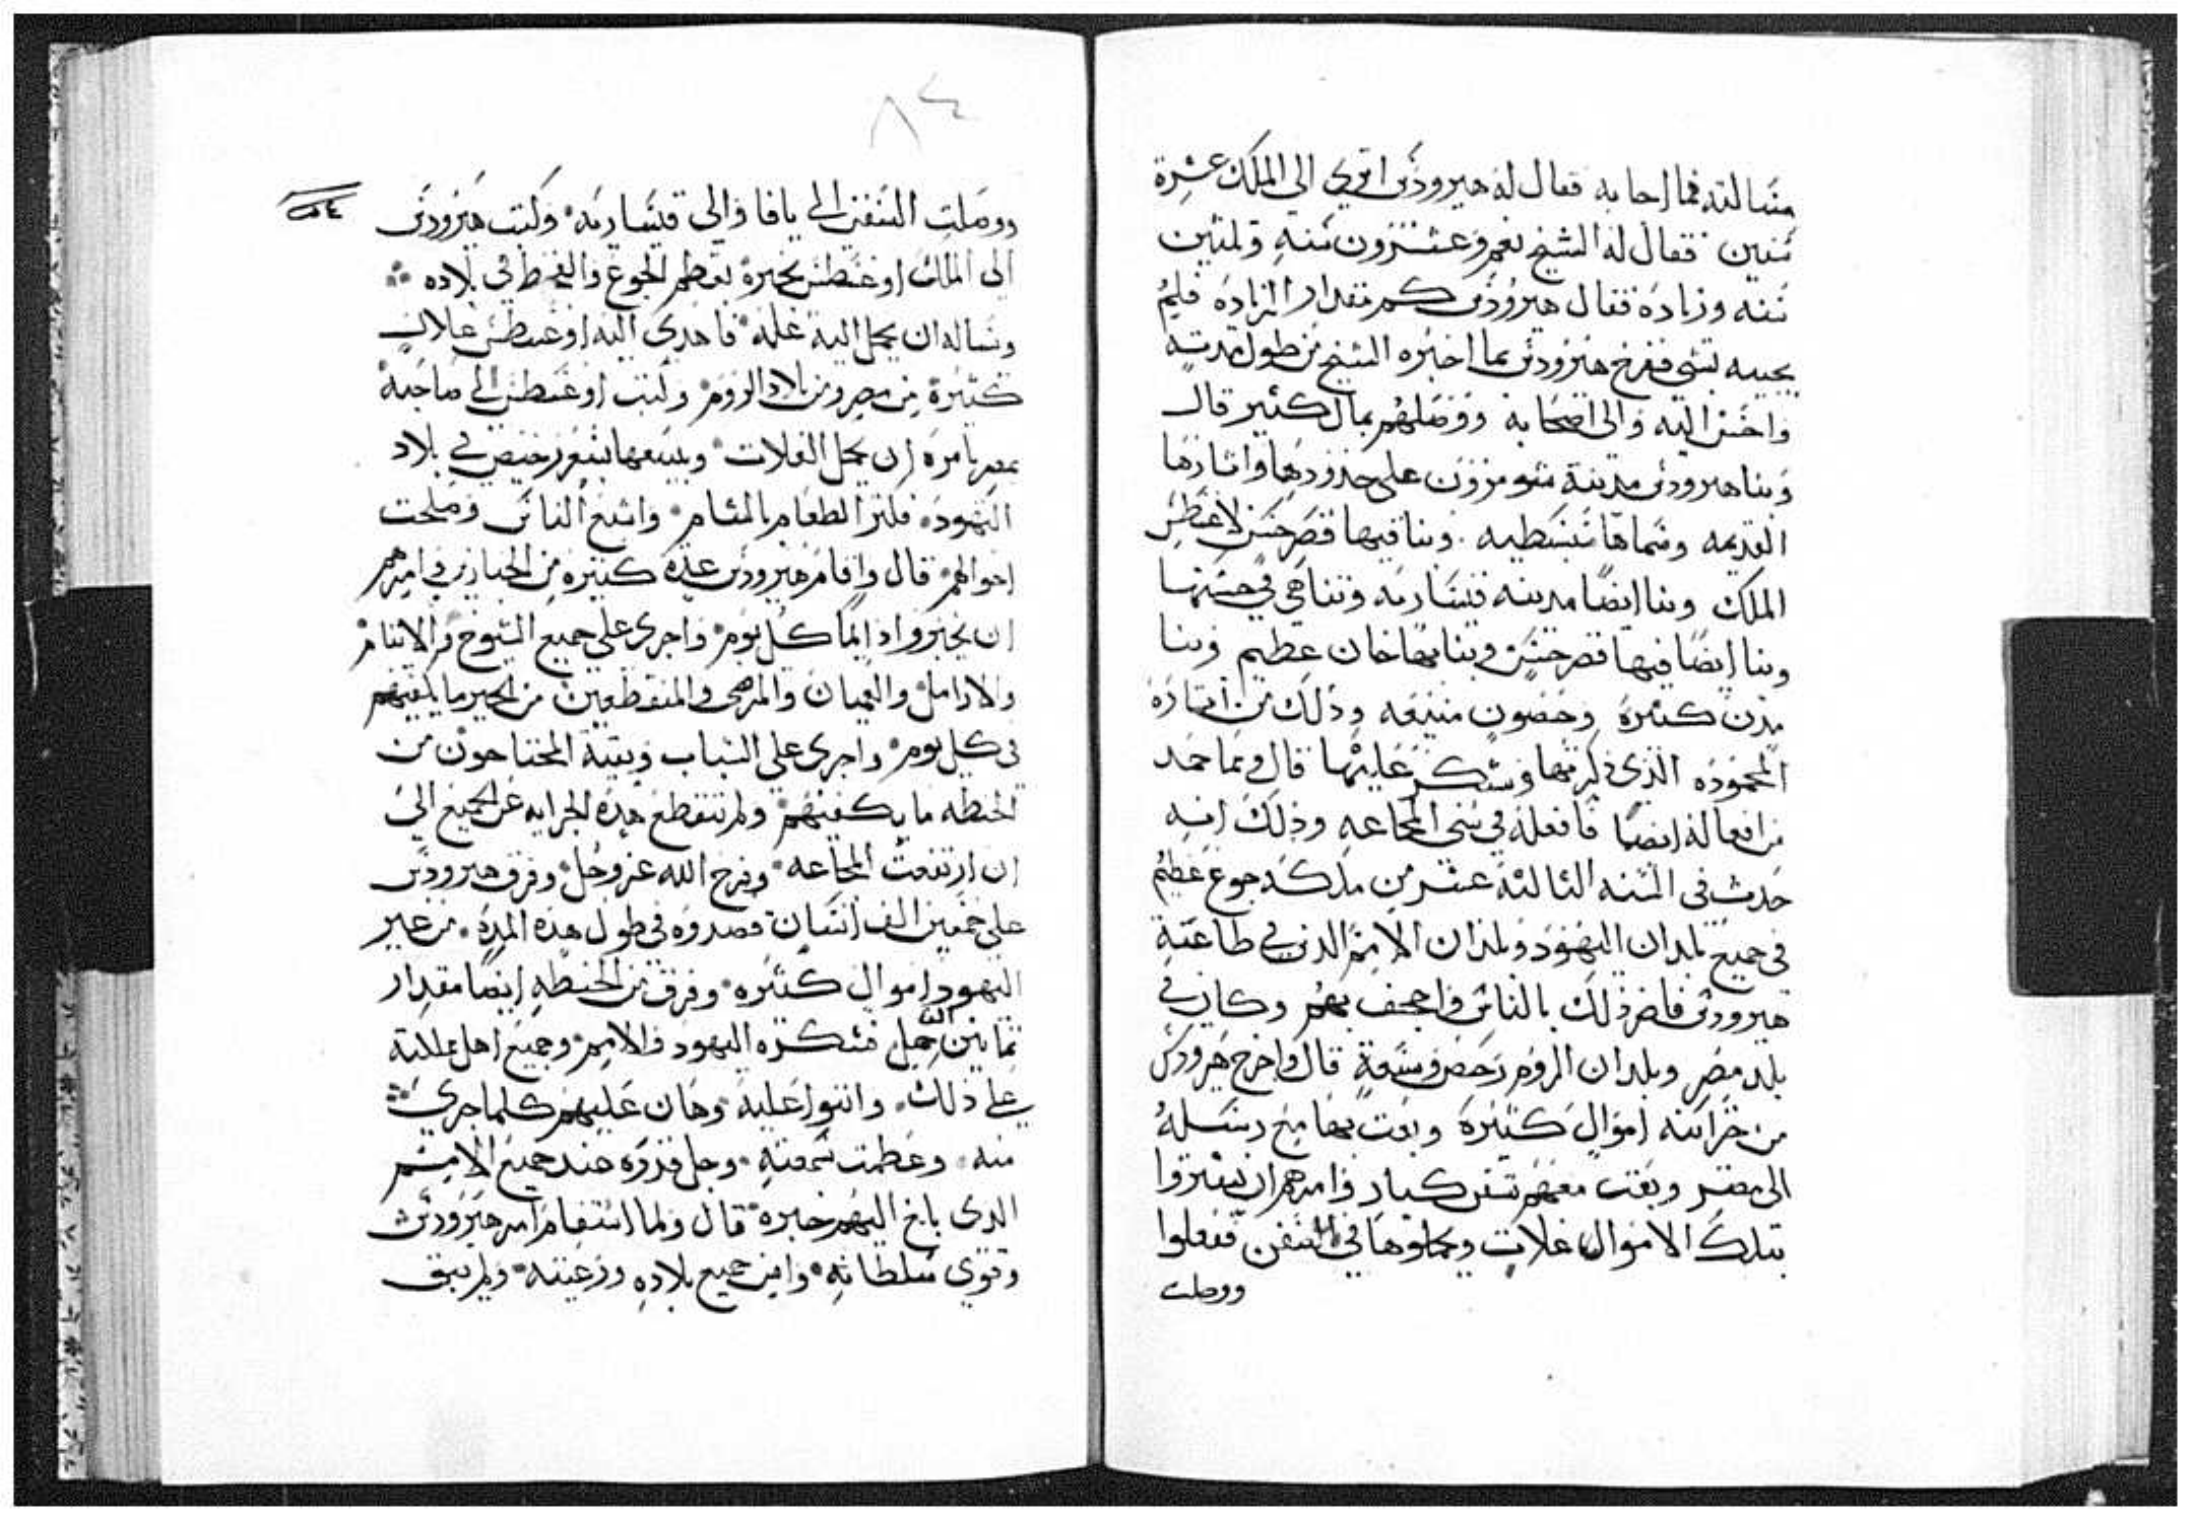 مسالته فما اجابه فقال له هيرودس اترى الى الملك عشرة
سنين فقال له الشيخ نعم وعشرون سنه وثلثين
سنه وزياده فقال هيرودس كم مقدار الزياده فلم
يجيبه بشي ففرح هيرودس بما اخبره الشيخ من طول مدته
واحسن اليه والى اصحابه ووصلهم بمال كثير قال
وبنا هيرودس مدينة شومرون على حدودها واثارها
القديمه وسماها سبسطيه وبنا فيها قصر حسن لاغسطس
الملك وبنا ايضا مدينه قيساريه وتناهى في حسنها
وبنا ايضا فيها قصر حسن وبنا بها خان عظيم وبنا
مدن كثيرة وحصون منيعه وذلك من اثاره
المحموده الذي ذكر بها وشكر عليها قال ومما حمد
من افعاله ايضا ما فعله في سني المجاعه وذلك انه
حدث في السنه الثالثة عشر من ملكه جوع عظيم
في جميع بلدان اليهود وبلدان الامم الذين في طاعته
هيرودس فاضر ذلك بالناس واجحف بهم وكان في
بلد مصر وبلدان الروم رخص وسعة قال واخرج هيرودس
من خزاينه اموال كثيرة وبعت بها مع رسله
الى مصر وبعت معهم سفن كبار وامرهم ان يشتروا
بتلك الاموال غلات ويحملوها في السفن ففعلوا
ووصلت
٨٤
ووصلت السفن الى يافا والى قيساريه وكتب هيرودس
الى الملك اوغسطس يخبره بعظم الجوع والقحط في بلاده
وساله ان يحمل اليه غله فاهدى اليه اوغسطس غلات
كثيرة من مصر ومن بلاد الروم وكتب اوغسطس الى صاحبه
بمصر يامره ان يحمل الغلات ويبيعها بسعر رخيص في بلاد
اليهود فكثر الطعام بالشام واشبع الناس وصلحت
احوالهم قال واقام هيرودس عدة كثيره من الخبازين وامرهم
ان يخبزوا دايما كل يوم واجرى على جميع الشيوخ والايتام
والارامل والعميان والمرضى والمنقطعين من الخبز ما يكفيهم
في كل يوم واجرى على الشباب وبقية المحتاجون من
الحنطه ما يكفيهم ولم تنقطع هده الجرايه عن الجميع الى
ان ارتفعت المجاعه وفرج الله عز وجل وفرق هيرودس
على خمسين الف انسان قصدوه في طول هده المدة من غير
اليهود اموال كثيره وفرق من الحنطه ايضا مقدار
ثمانين الف حمل فشكره اليهود والامم وجميع اهل مملكته
على ذلك واثنوا عليه وهان عليهم كلما جرى
منه وعظمت سمعته وجل قدره عند جميع الامم
الدى بلغ اليهم خبره قال ولما استقام امر هيرودس
وقوي سلطانه وامن جميع بلاده ورعيته ولم يبق